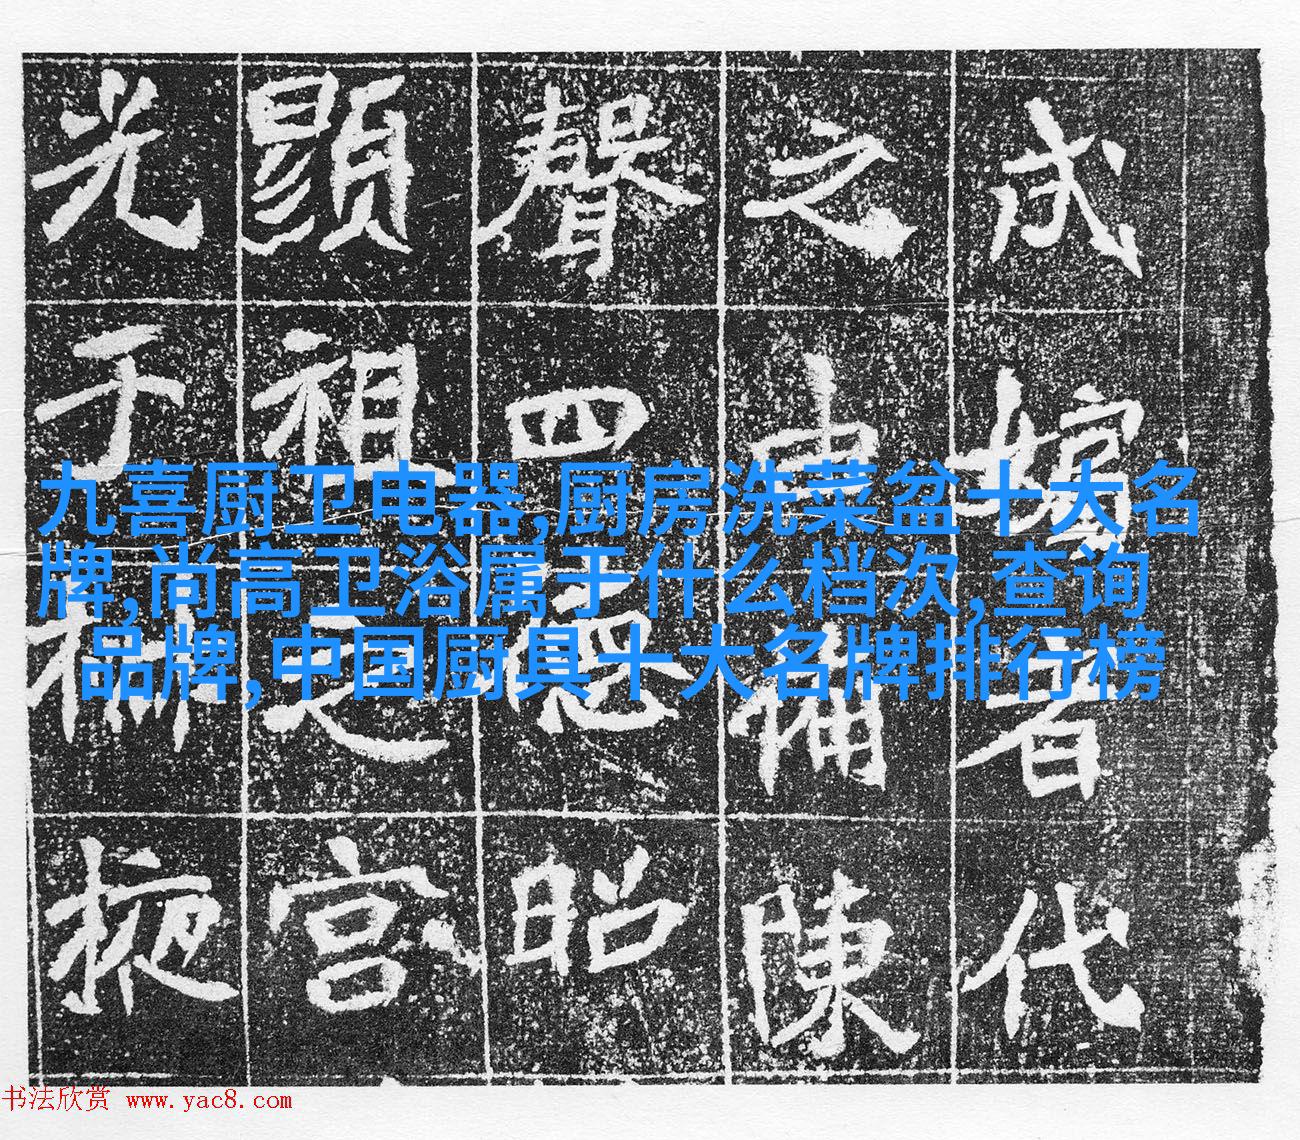 成嬪者代
之補陳
聲四德昭
顯祖之宮
光于掖
九喜厨卫电器,厨房洗菜盆十大名
牌,尚高卫浴属于什么档次,查询
品牌,中国厨具十大名牌排行榜
书法欣赏 www.yac8.com